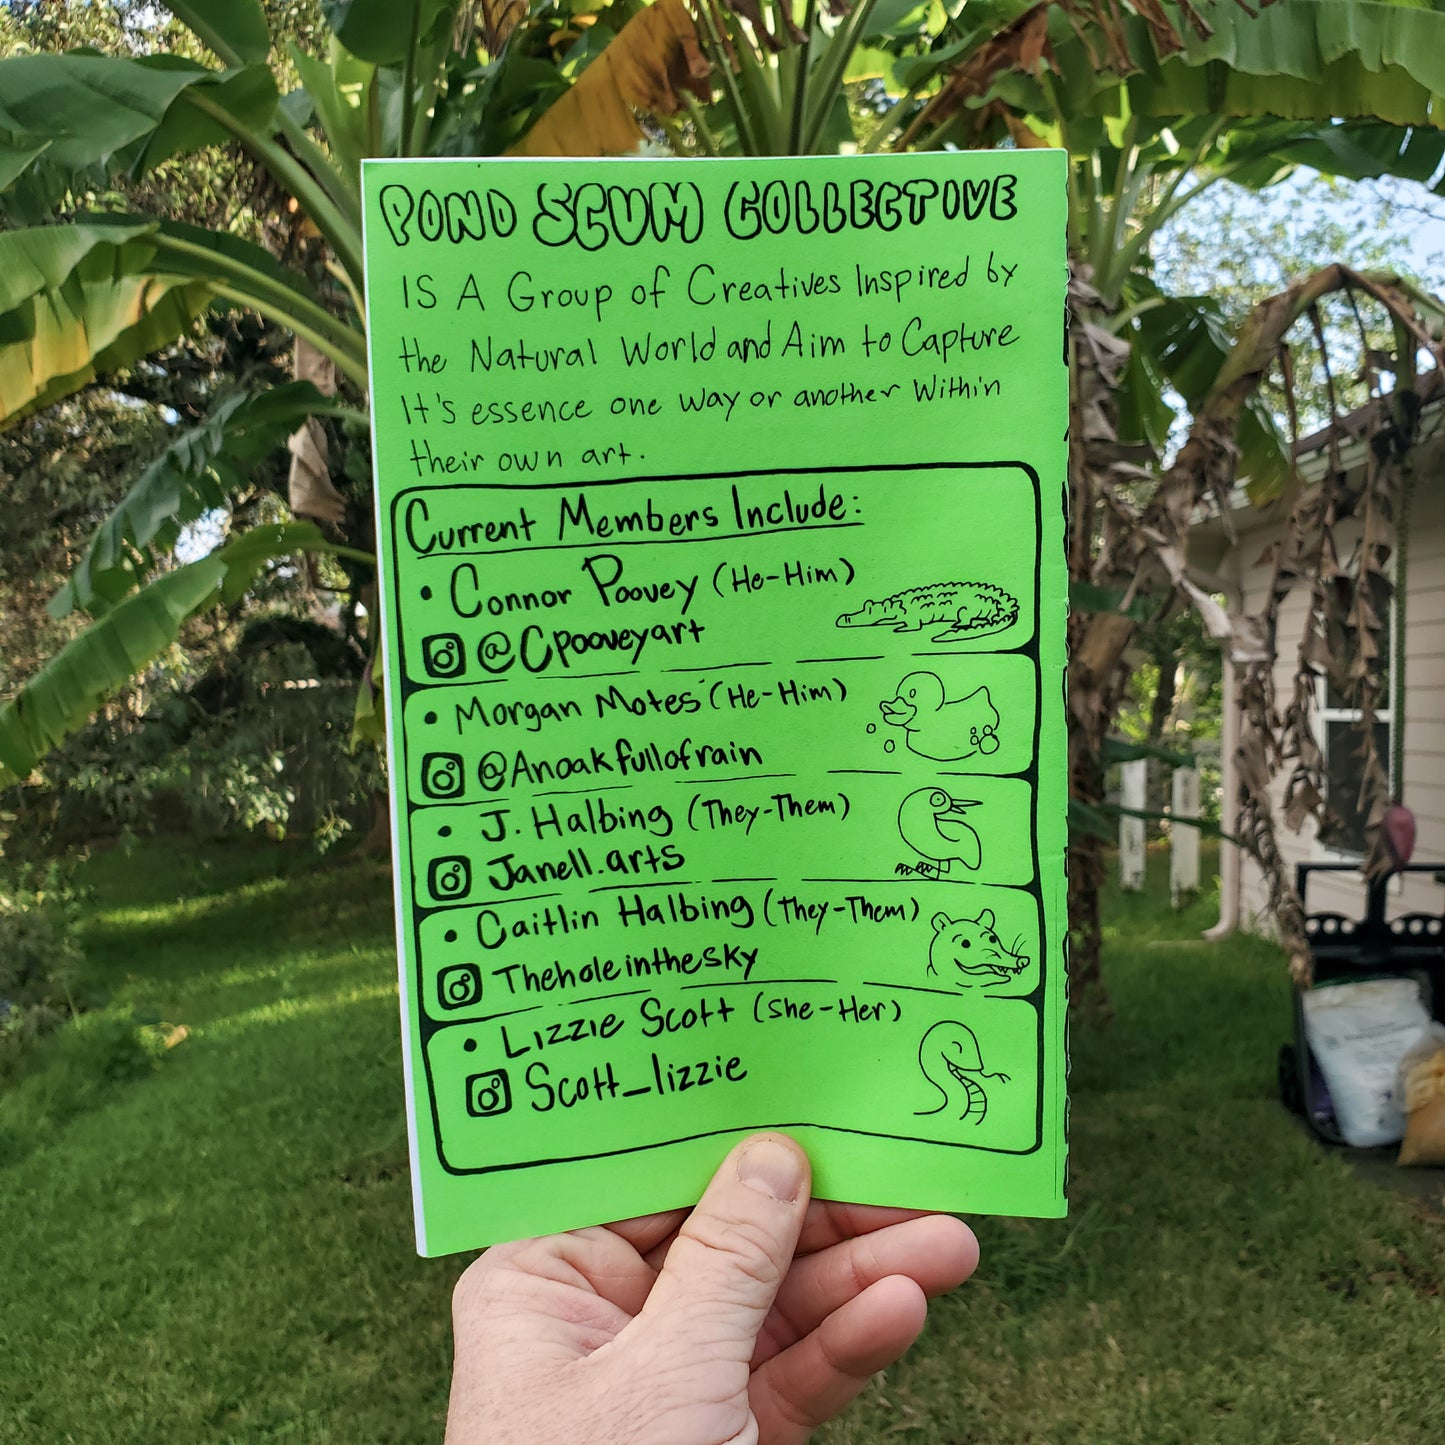 POND SCUM COLLECTIVE
IS A Group of Creatives Inspired by
the Natural World and Aim to Capture
It's essence one way or another Within
their own art.
Current Members Include:
• Connor Poovey (He-Him)
@Cpooveyart
• Morgan Motes (He-Him)
@Anoakfullofrain
• J. Halbing (They-Them)
Janell.arts
• Caitlin Halbing (They-Them)
Theholeinthesky
• Lizzie Scott (She-Her)
Scott_lizzie